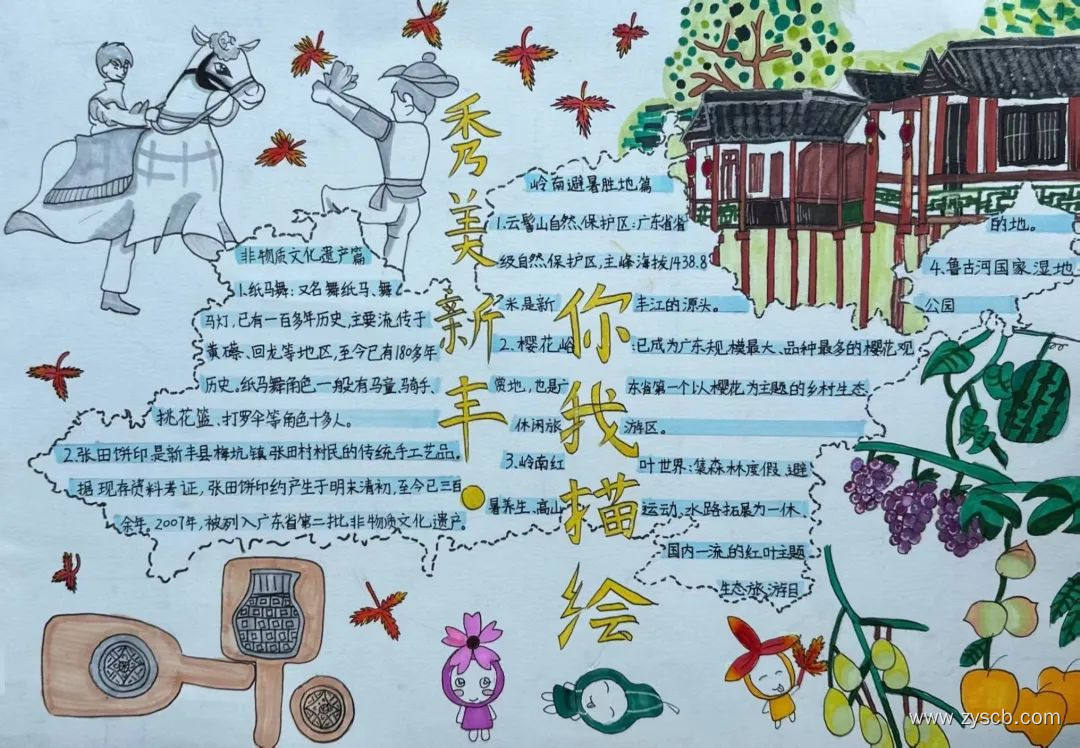 秀美新丰·
你我描绘
非物质文化遗产篇
1.纸马舞:又名舞纸马、舞
马灯,已有一百多年历史,主要流传于
黄磜、回龙等地区,至今已有180多年
历史。纸马舞角色一般有马童、骑手、
挑花篮、打罗伞等角色十多人。
2.张田饼印是新丰县梅坑镇张田村村民的传统手工艺品。
据现存资料考证,张田饼印约产生于明末清初,至今已三百
余年。2007年,被列入广东省第二批非物质文化遗产
岭南避暑胜地篇
1.云髻山自然保护区:广东省省
级自然保护区,主峰海拔1438.8
米是新丰江的源头。
2.樱花峪:已成为广东规模最大、品种最多的樱花观
赏地,也是广东省第一个以樱花为主题的乡村生态
休闲旅游区。
3.岭南红叶世界:集森林度假、避
暑养生、高山运动、水路拓展为一体、
国内一流的红叶主题
生态旅游目
的地。
4.鲁古河国家湿地
公园
www.zyscb.com